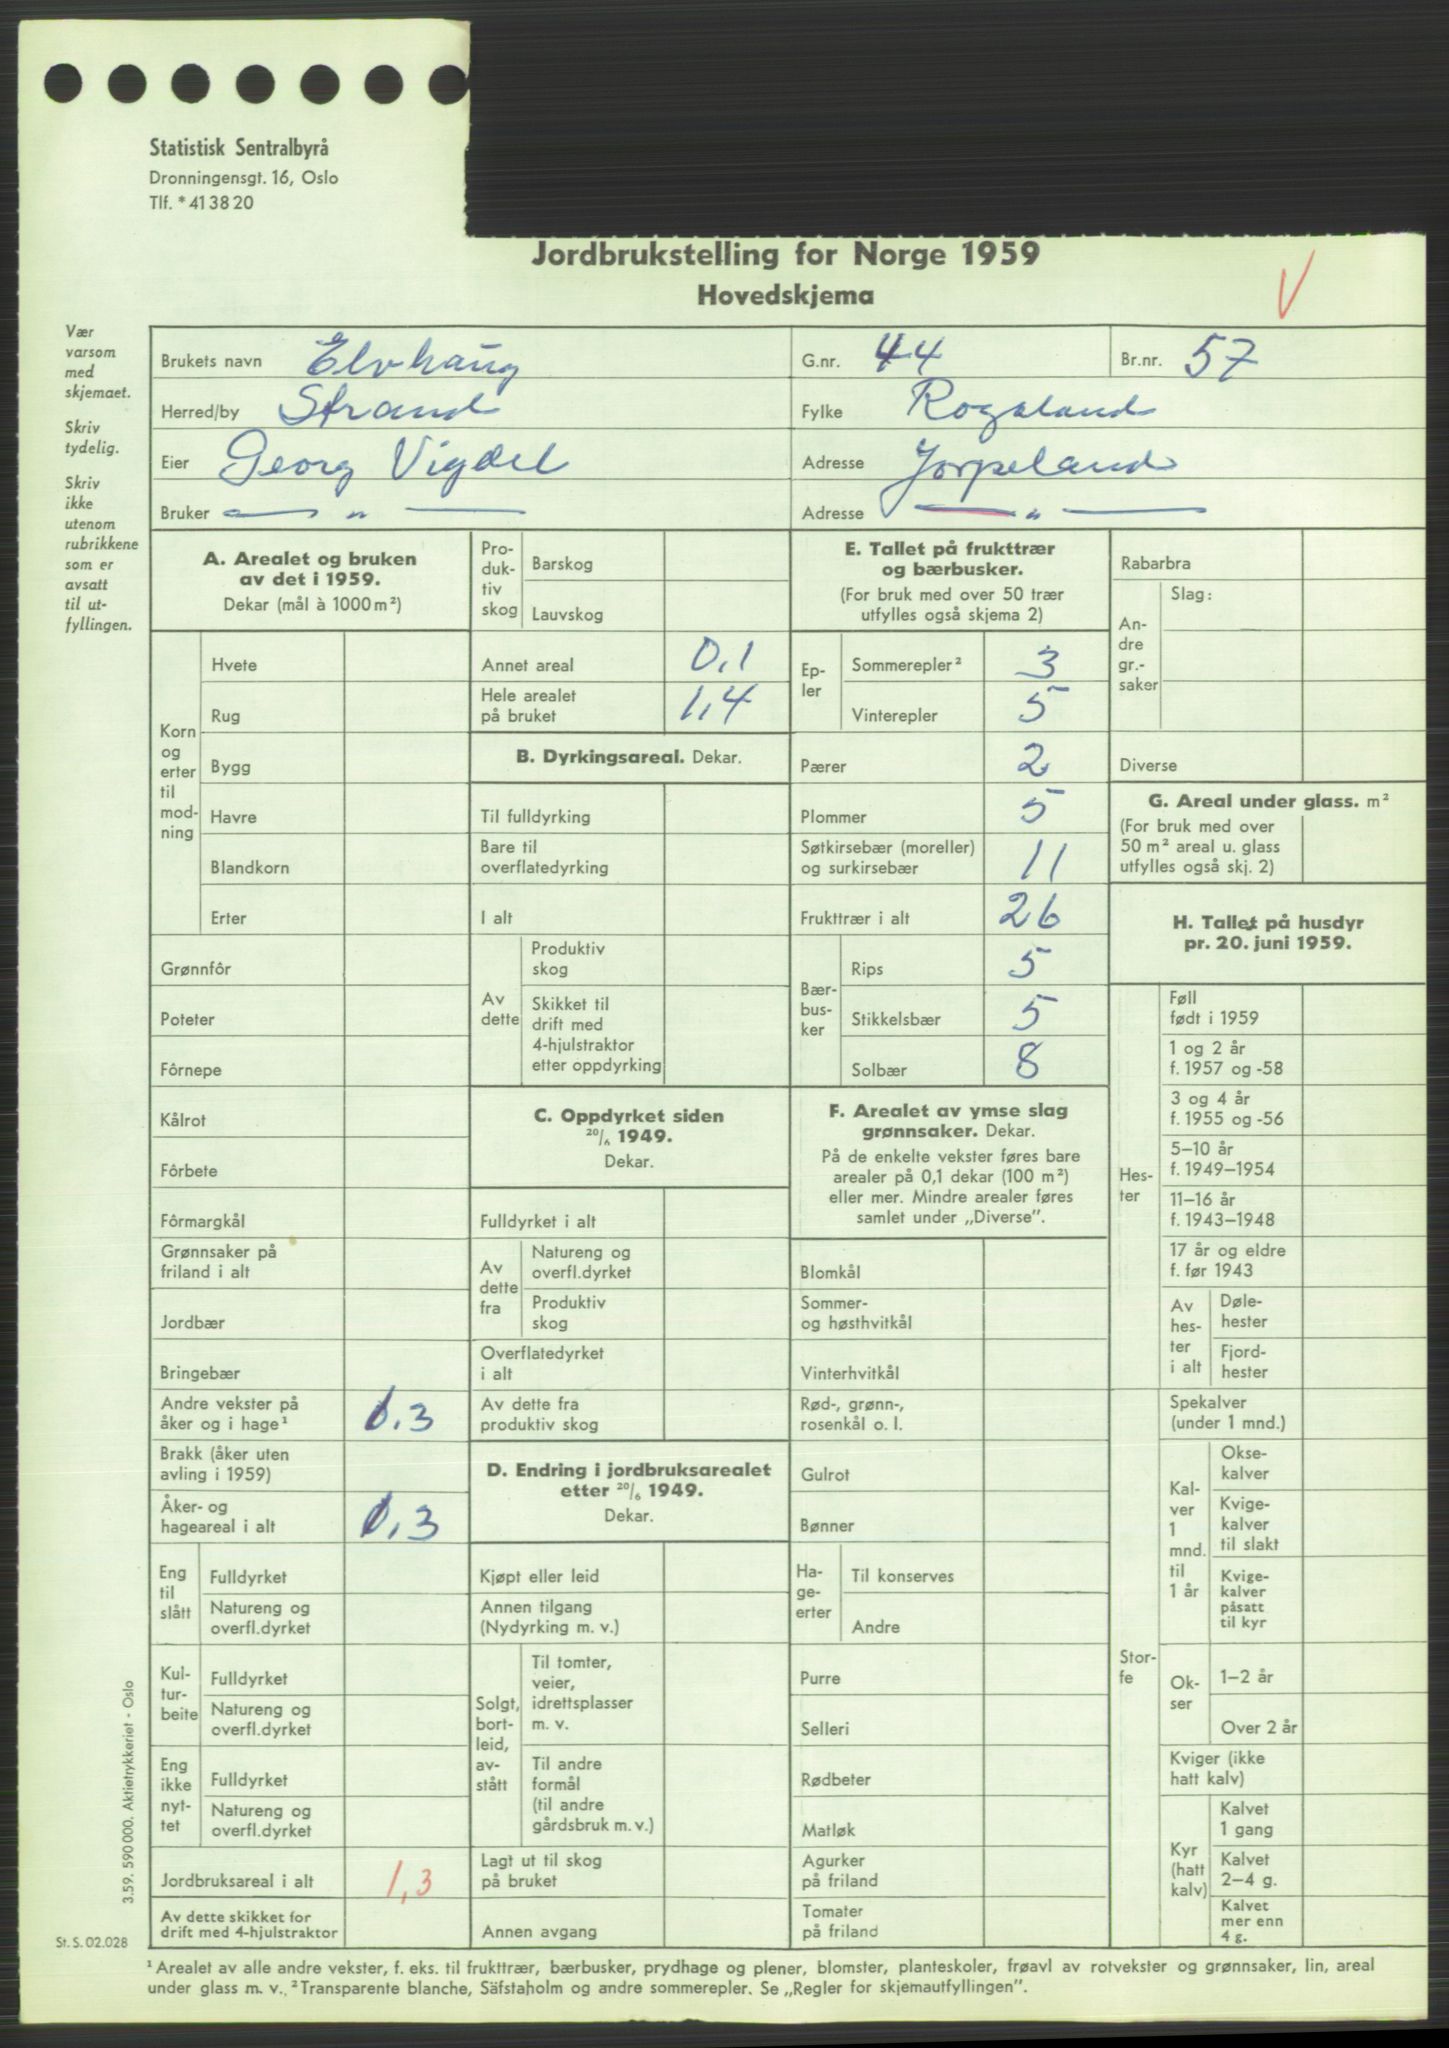 Statistisk Sentralbyrå
Dronningensgt. 16, Oslo
Tlf. * 41 38 20
Jordbrukstelling for Norge 1959
Hovedskjema
Vær
varsom
med
skjemaet.
Skriv
tydelig.
Skriv
ikke
utenom
rubrikkene
som er
avsatt
til ut-
fyllingen.
Brukets navn Elvhaug G.nr. 44 Br.nr. 57
Herred/by Strand Fylke Rogaland
Eier Georg Vigdel Adresse Jørpeland
Bruker — " — Adresse — " —
A. Arealet og bruken
av det i 1959.
Dekar (mål à 1000 m²)
Korn
og
erter
til
mod-
ning
Hvete
Rug
Bygg
Havre
Blandkorn
Erter
Grønnfôr
Poteter
Fôrnepe
Kålrot
Fôrbete
Fôrmargkål
Grønnsaker på
friland i alt
Jordbær
Bringebær
Andre vekster på
åker og i hage¹ 1.3
Brakk (åker uten
avling i 1959)
Åker- og
hageareal i alt 1.3
Eng
til
slått
Fulldyrket
Natureng og
overfl.dyrket
Kul-
tur-
beite
Fulldyrket
Natureng og
overfl.dyrket
Eng
ikke
nyt-
tet
Fulldyrket
Natureng og
overfl.dyrket
Jordbruksareal i alt 1,3
Av dette skikket for
drift med 4-hjulstraktor
Pro-
duk-
tiv
skog
Barskog
Lauvskog
Annet areal 0,1
Hele arealet
på bruket 1,4
B. Dyrkingsareal. Dekar.
Til fulldyrking
Bare til
overflatedyrking
I alt
Av
dette
Produktiv
skog
Skikket til
drift med
4-hjulstraktor
etter oppdyrking
C. Oppdyrket siden
20/6 1949.
Dekar.
Fulldyrket i alt
Av
dette
fra
Natureng og
overfl.dyrket
Produktiv
skog
Overflatedyrket
i alt
Av dette fra
produktiv skog
D. Endring i jordbruksarealet
etter 20/6 1949.
Dekar.
Kjøpt eller leid
Annen tilgang
(Nydyrking m. v.)
Solgt,
bort-
leid,
av-
stått
Til tomter,
veier,
idrettsplasser
m. v.
Til andre
formål
(til andre
gårdsbruk m. v.)
Lagt ut til skog
på bruket
Annen avgang
E. Tallet på frukttrær
og bærbusker.
(For bruk med over 50 trær
utfylles også skjema 2)
Ep-
ler
Sommerepler² 3
Vinterepler 5
Pærer 2
Plommer 5
Søtkirsebær (moreller)
og surkirsebær 11
Frukttrær i alt 26
Bær-
bus-
ker
Rips 5
Stikkelsbær 5
Solbær 8
F. Arealet av ymse slag
grønnsaker. Dekar.
På de enkelte vekster føres bare
arealer på 0,1 dekar (100 m²)
eller mer. Mindre arealer føres
samlet under „Diverse".
Blomkål
Sommer-
og høsthvitkål
Vinterhvitkål
Rød-, grønn-,
rosenkål o. l.
Gulrot
Bønner
Ha-
ge-
erter
Til konserves
Andre
Purre
Selleri
Rødbeter
Matløk
Agurker
på friland
Tomater
på friland
Rabarbra
An-
dre
gr.-
saker
Slag:
Diverse
G. Areal under glass. m²
(For bruk med over
50 m² areal u. glass
utfylles også skj. 2)
H. Tallet på husdyr
pr. 20. juni 1959.
Hes-
ter
Føll
født i 1959
1 og 2 år
f. 1957 og -58
3 og 4 år
f. 1955 og -56
5–10 år
f. 1949–1954
11–16 år
f. 1943–1948
17 år og eldre
f. før 1943
Av
hes-
ter
i alt
Døle-
hester
Fjord-
hester
Stor-
fe
Spekalver
(under 1 mnd.)
Kal-
ver
1
mnd.
til
1 år
Okse-
kalver
Kvige-
kalver
til slakt
Kvige-
kalver
påsatt
til kyr
Ok-
ser
1–2 år
Over 2 år
Kviger (ikke
hatt kalv)
Kyr
(hatt
kalv)
Kalvet
1 gang
Kalvet
2–4 g.
Kalvet
mer enn
4 g.
3.59. 590 000. Aktietrykkeriet - Oslo
St. S. 02.028
¹ Arealet av alle andre vekster, f. eks. til frukttrær, bærbusker, prydhage og plener, blomster, planteskoler, frøavl av rotvekster og grønnsaker, lin, areal
under glass m. v. ² Transparente blanche, Säfstaholm og andre sommerepler. Se „Regler for skjemautfyllingen".